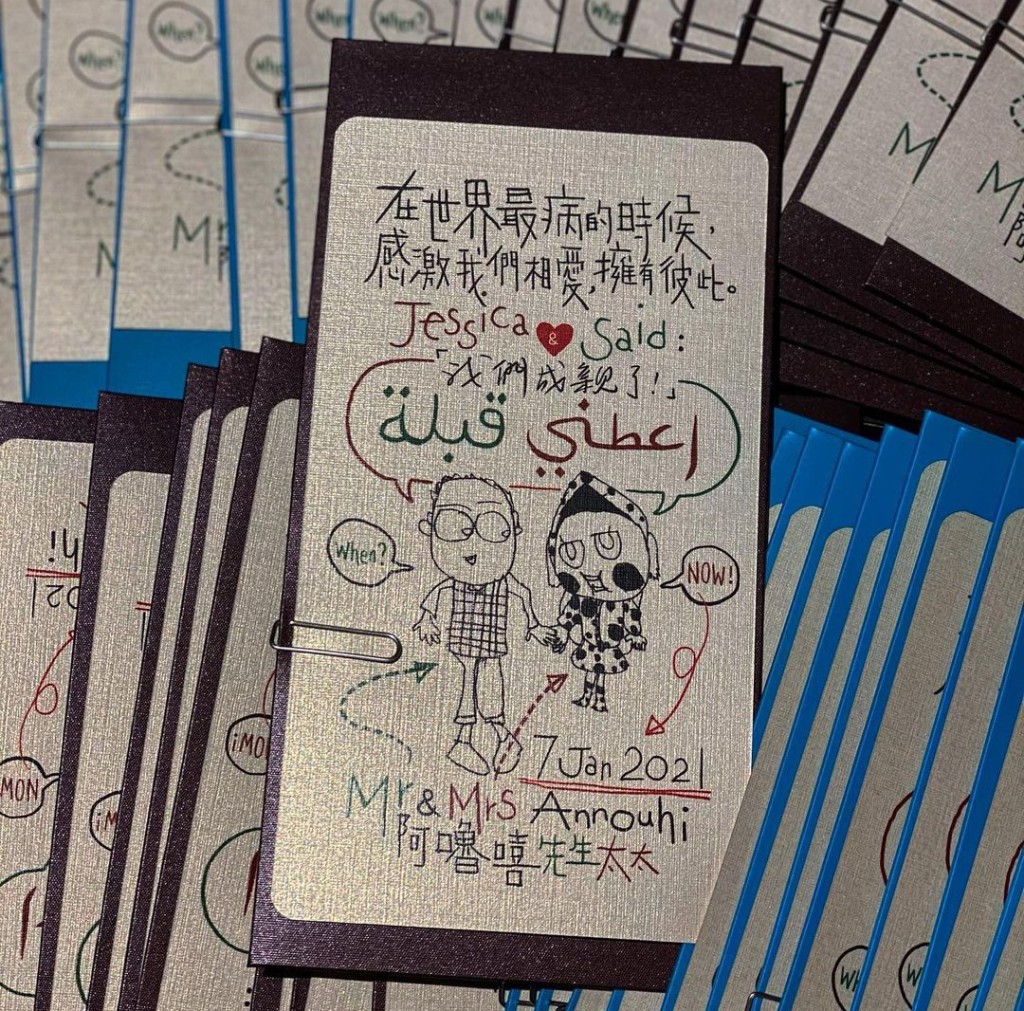 在世界最病的時候，
感激我們相愛，擁有彼此。
Jessica & Said:
「我們成親了!」
اعطني قبلة
When?
NOW!
7 Jan 2021
Mr & Mrs Annouhi
阿嚕嘻先生太太
When?
When?
Mr
Mr